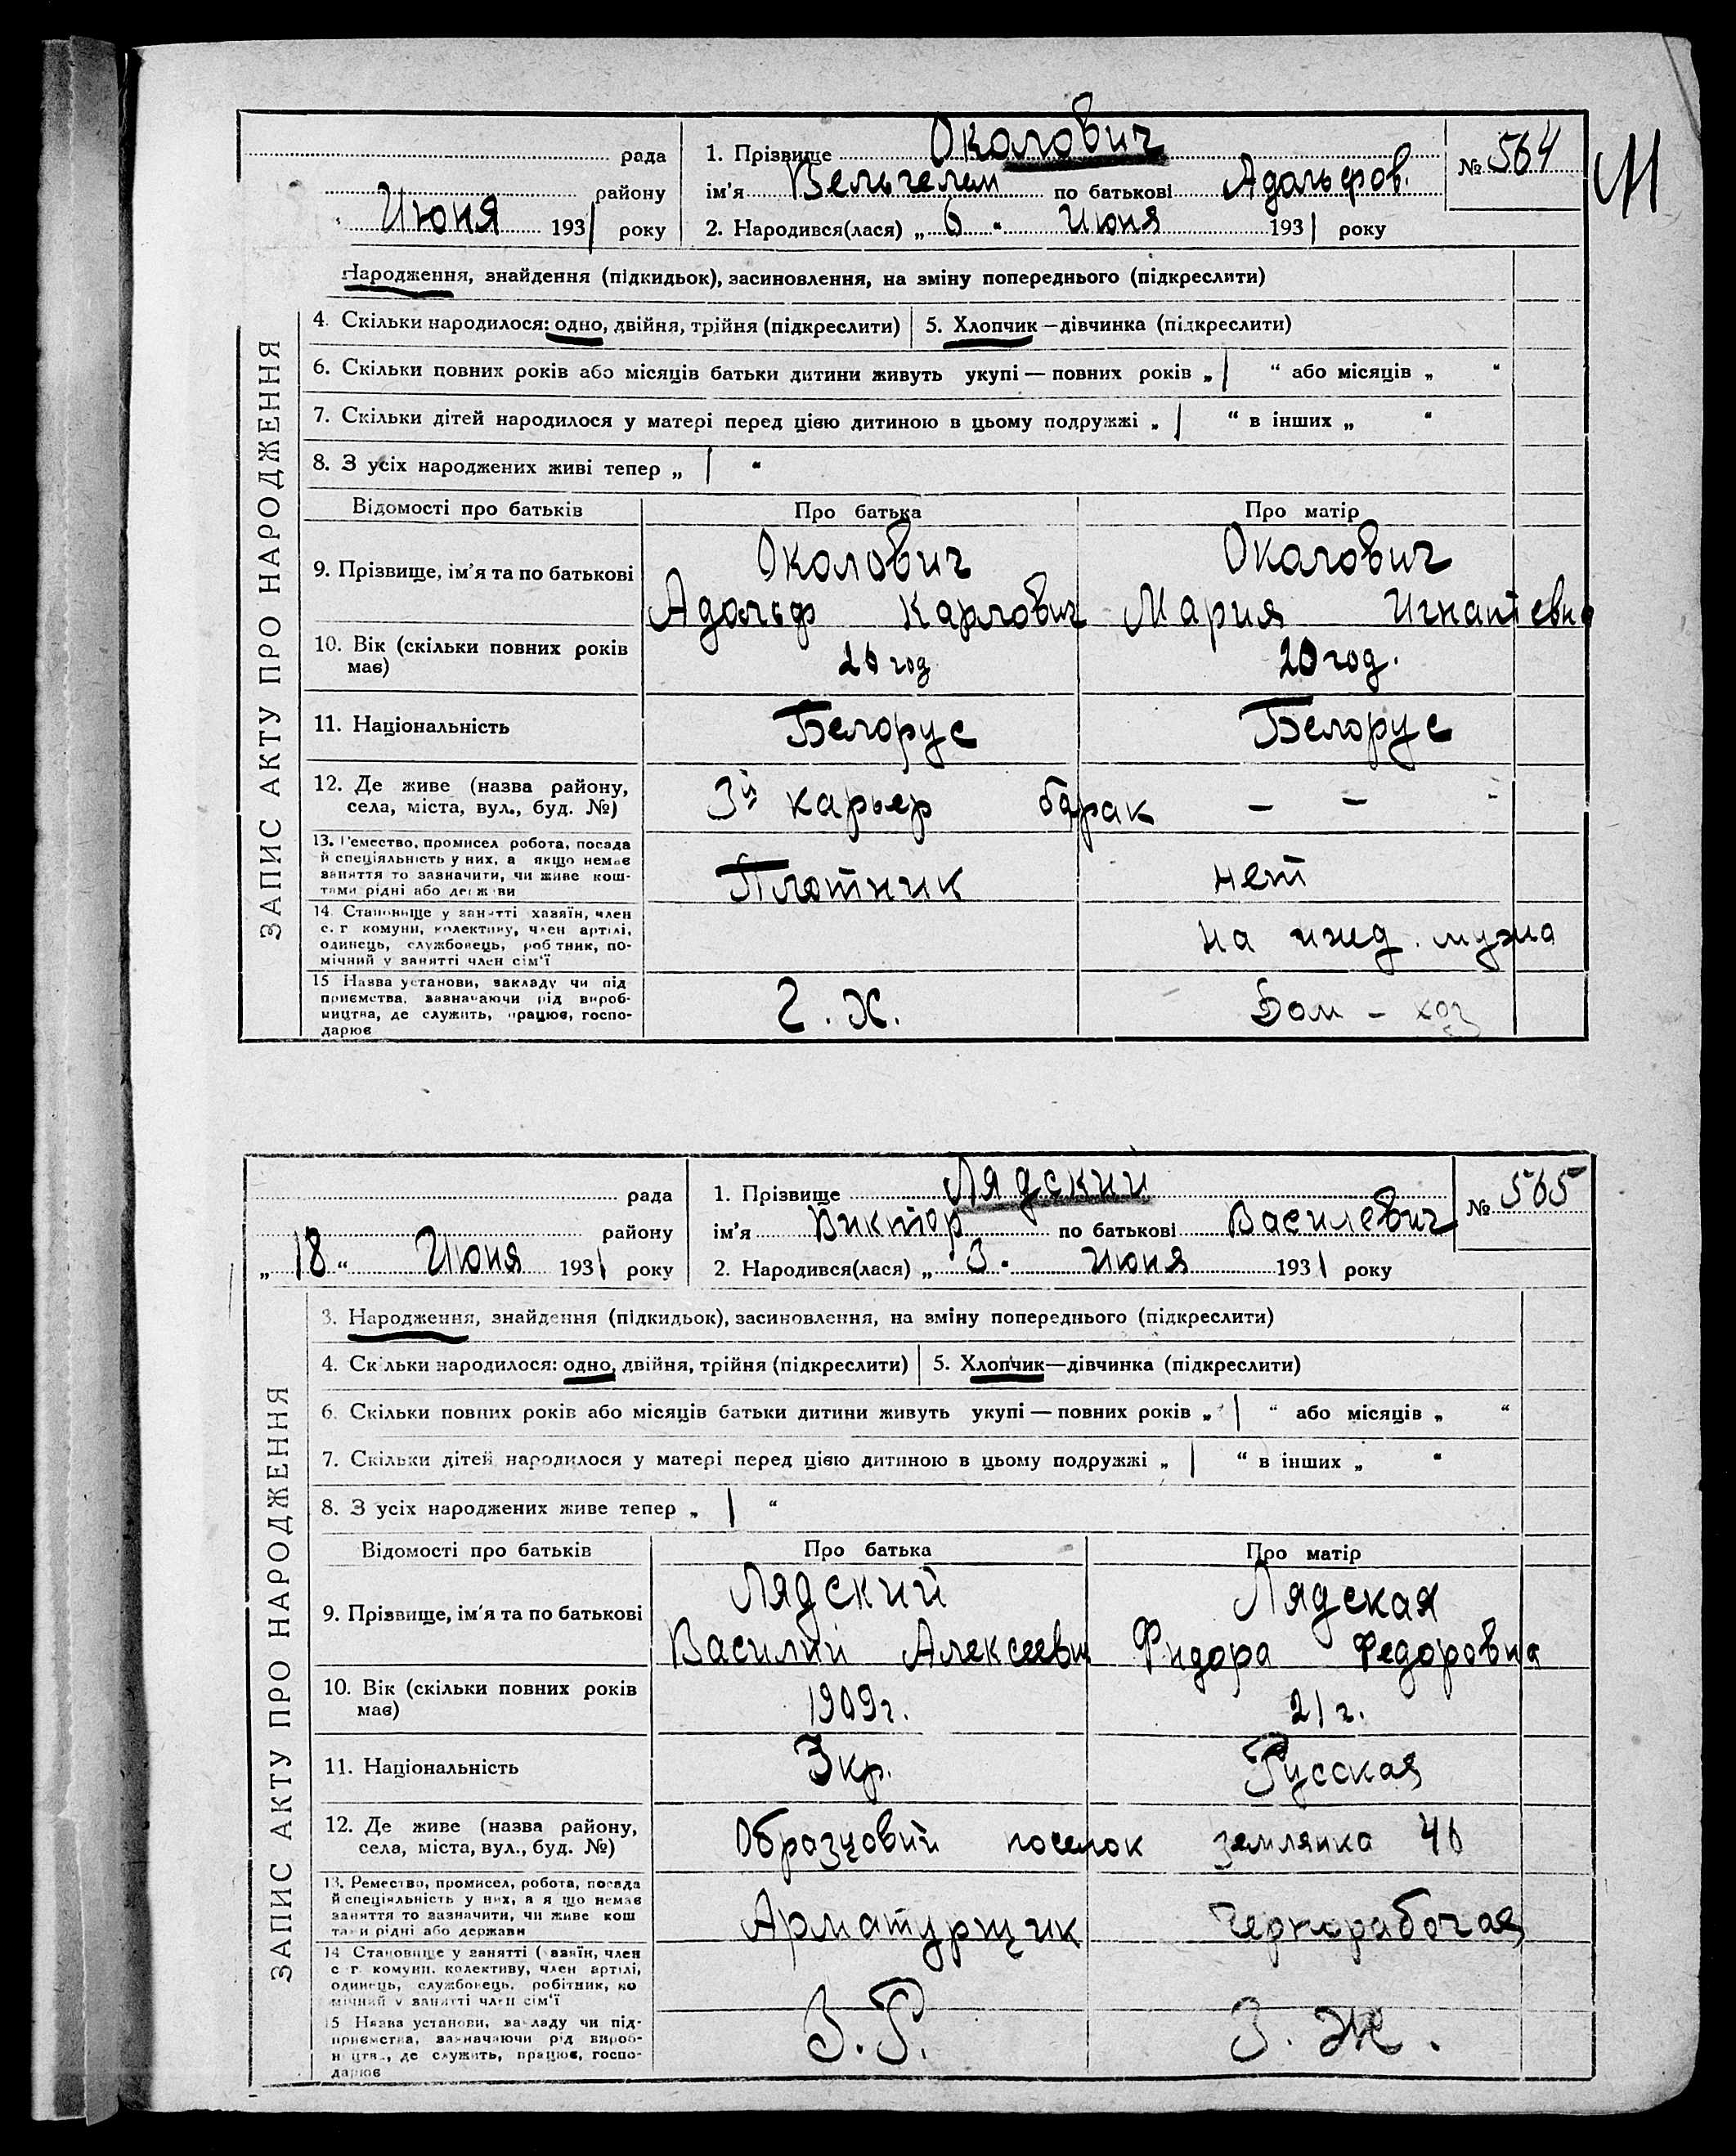 Околович
рада 1. Прізвище № 564
району ім'я Вельгелем по батькові Адольфов.
Июня 1931 року 2. Народився(лася) „ 6 “ Июня 1931 року
Народження, знайдення (підкидьок), засиновлення, на зміну попереднього (підкреслити)
4. Скільки народилося: одно, двійня, трійня (підкреслити) 5. Хлопчик—дівчинка (підкреслити)
6. Скільки повних років або місяців батьки дитини живуть укупі — повних років „ / “ або місяців „ “
7. Скільки дітей народилося у матері перед цією дитиною в цьому подружжі „ / “ в інших „ “
8. З усіх народжених живі тепер „ / “
ЗАПИС АКТУ ПРО НАРОДЖЕННЯ
Відомості про батьків Про батька Про матір
9. Прізвище, ім'я та по батькові Околович Околович
Адольф Карлович Мария Игнатьевна
10. Вік (скільки повних років має) 26 год 20 год.
11. Національність Белорус Белорус
12. Де живе (назва району, села, міста, вул., буд. №) 3й карьер барак — — -
13. Ремество, промисел робота, посада
й спеціяльність у них, а якщо немає
заняття то зазначити, чи живе кош-
тами рідні або держави Плотник нет
14. Становище у занятті хазяїн, член
с. г комуни, колективу, член артілі,
одинець, службовець, робітник, по-
мічний у занятті член сім'ї на ижед. мужа
15 Назва установи, закладу чи під
приємства, зазначаючи рід вироб-
ництва, де служить, працює, госпо-
дарює Г. Х. Дом - хоз
Лядский
рада 1. Прізвище № 565
району ім'я Виктор по батькові Василевич
„ 18 “ Июня 1931 року 2. Народився(лася) „ 3 “ июня 1931 року
3. Народження, знайдення (підкидьок), засиновлення, на зміну попереднього (підкреслити)
4. Скільки народилося: одно, двійня, трійня (підкреслити) 5. Хлопчик—дівчинка (підкреслити)
6. Скільки повних років або місяців батьки дитини живуть укупі — повних років „ / “ або місяців „ “
7. Скільки дітей народилося у матері перед цією дитиною в цьому подружжі „ / “ в інших „ “
8. З усіх народжених живе тепер „ / “
ЗАПИС АКТУ ПРО НАРОДЖЕННЯ
Відомості про батьків Про батька Про матір
9. Прізвище, ім'я та по батькові Лядский Лядская
Василий Алексееви Фидора Федоровна
10. Вік (скільки повних років має) 1909г. 21 г.
11. Національність Укр. Русская
12. Де живе (назва району, села, міста, вул., буд. №) Образцовий поселок землянка 46
13. Ремество, промисел, робота, посада
й спеціяльність у них, а я що немає
заняття то зазначити, чи живе кош
тами рідні або держави Арматурщик Чернорабочая
14 Становище у занятті (хазяїн, член
с г комуни, колективу, член артілі,
одинець, службовець, робітник, по
мічний у занятті член сім'ї
15 Назва установи, закладу чи під-
приємства, зазначаючи рід вироб-
ництв., де служить, працює, госпо-
дарює З. Р. З. Ж.